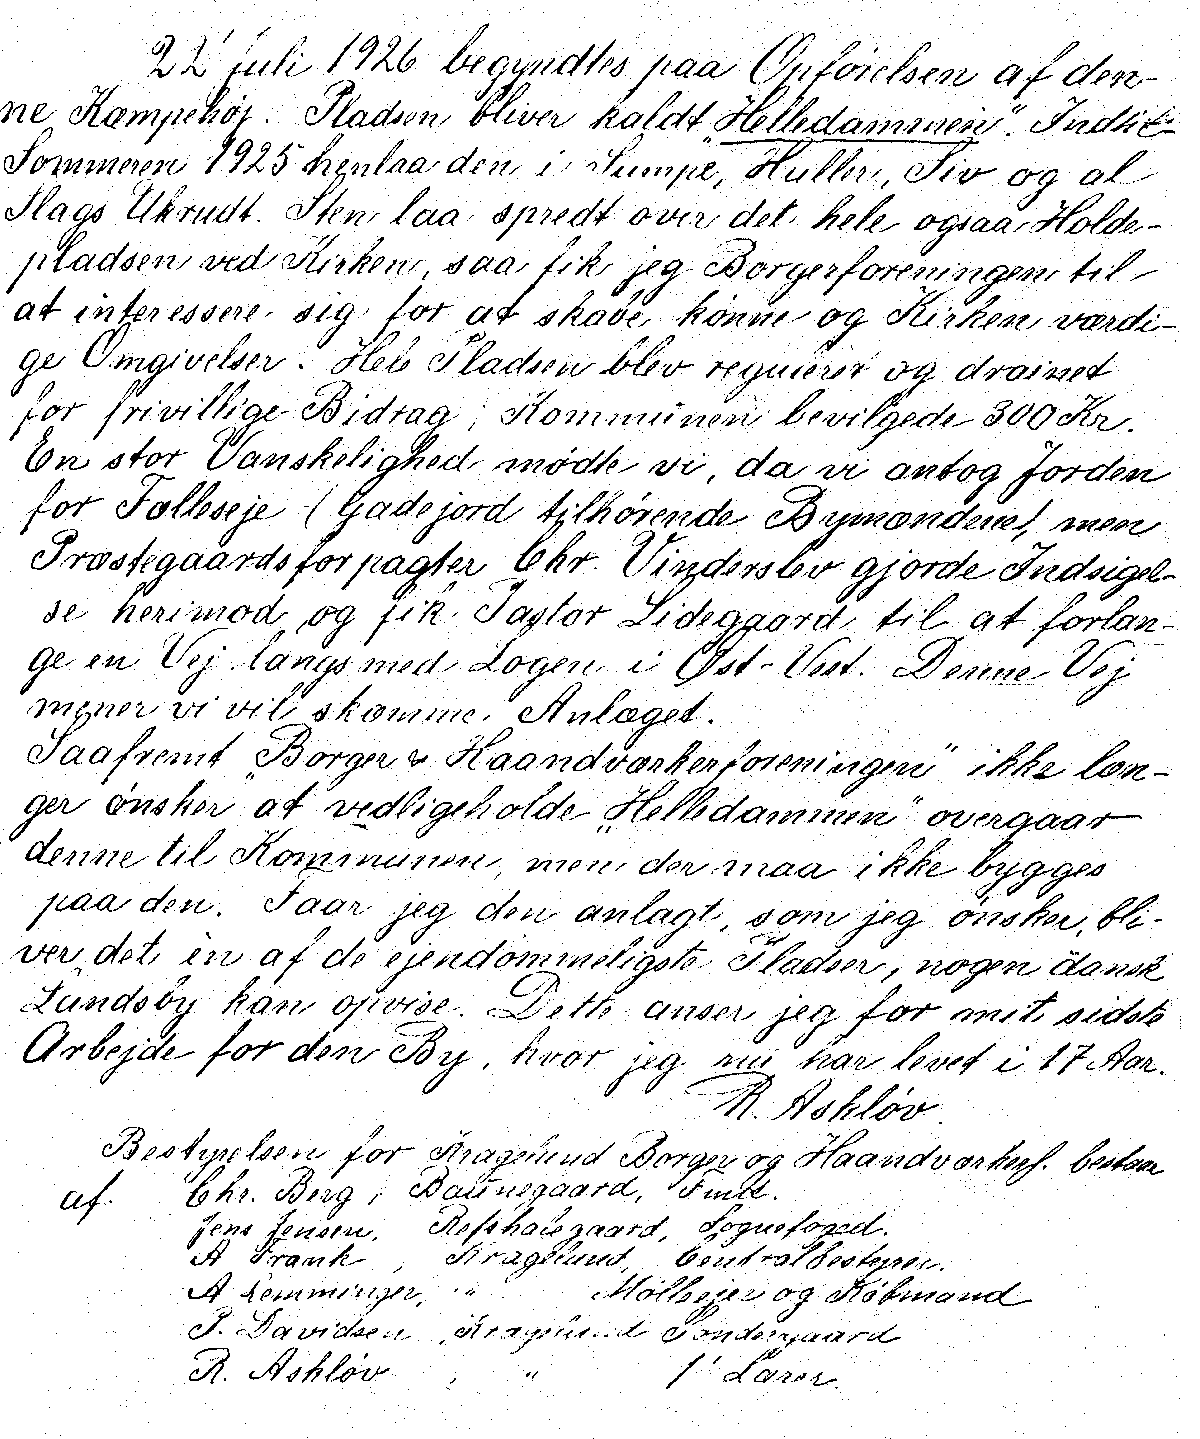 22 juli 1926 begyndtes paa Opførelsen af den-
ne Kæmpehøj. Pladsen bliver kaldt „Helledammen". Indtil
Sommeren 1925 henlaa den i Sumpe, Huller, Siv og al
Slags Ukrudt. Sten laa spredt over det hele ogsaa Holde-
pladsen ved Kirken, saa fik jeg Borgerforeningen til
at interessere sig for at skabe kønne og Kirken værdi-
ge Omgivelser. Hele Pladsen blev reguleret og drainet
for frivillige Bidrag, Kommunen bevilgede 300 Kr.
En stor Vanskelighed mødte vi, da vi antog Jorden
for Fælleseje (Gadejord tilhørende Bymændene), men
Præstegaardsforpagter Chr. Vinderslev gjorde Indsigel-
se herimod og fik Pastor Lidegaard til at forlan-
ge en Vej langs med Logen i Øst-Vest. Denne Vej
mener vi vil skæmme Anlæget.
Saafremt „Borger & Haandværkerforeningen" ikke læn-
ger ønsker at vedligeholde „Helledammen" overgaar
denne til Kommunen, men der maa ikke bygges
paa den. Faar jeg den anlagt, som jeg ønsker, bli-
ver det en af de ejendommeligste Pladser, nogen dansk
Landsby kan opvise. Dette anser jeg for mit sidste
Arbejde for den By, hvor jeg nu har levet i 17 Aar.
R. Ashløv.
Bestyrelsen for Kragelund Borger og Haandværkerf. bestaar
af. Chr. Berg, Baunegaard, Fmd.
Jens Jensen, Refshalegaard, Sognefoged.
A Frank, Kragelund, Centralbestyrer.
A Lemminger, " Mølleejer og Købmand
P. Davidsen, Kragelund Søndergaard
R. Ashløv, " 1' Lærer.